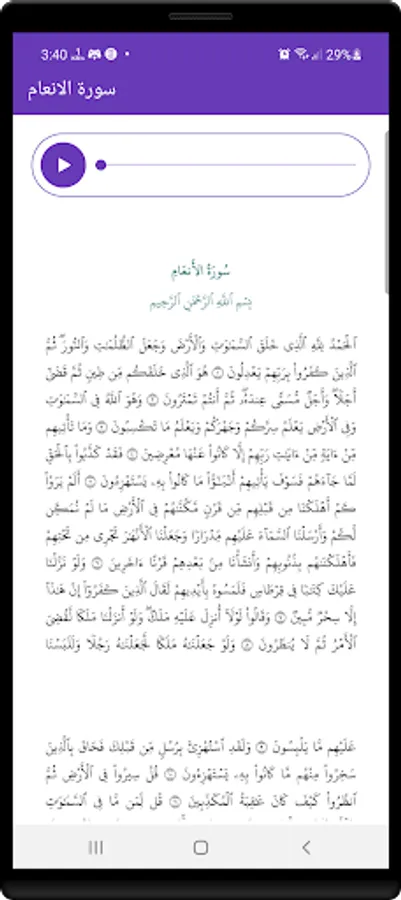 3:40
29%
سورة الانعام
سُورَةُ الأَنعَامِ
بِسْمِ ٱللَّهِ ٱلرَّحْمَٰنِ ٱلرَّحِيمِ
ٱلْحَمْدُ لِلَّهِ ٱلَّذِى خَلَقَ ٱلسَّمَٰوَٰتِ وَٱلْأَرْضَ وَجَعَلَ ٱلظُّلُمَٰتِ وَٱلنُّورَ ۖ ثُمَّ
ٱلَّذِينَ كَفَرُوا۟ بِرَبِّهِمْ يَعْدِلُونَ ۝ هُوَ ٱلَّذِى خَلَقَكُم مِّن طِينٍ ثُمَّ قَضَىٰٓ
أَجَلًا ۖ وَأَجَلٌ مُّسَمًّى عِندَهُۥ ۖ ثُمَّ أَنتُمْ تَمْتَرُونَ ۝ وَهُوَ ٱللَّهُ فِى ٱلسَّمَٰوَٰتِ
وَفِى ٱلْأَرْضِ ۖ يَعْلَمُ سِرَّكُمْ وَجَهْرَكُمْ وَيَعْلَمُ مَا تَكْسِبُونَ ۝ وَمَا تَأْتِيهِم
مِّنْ ءَايَةٍ مِّنْ ءَايَٰتِ رَبِّهِمْ إِلَّا كَانُوا۟ عَنْهَا مُعْرِضِينَ ۝ فَقَدْ كَذَّبُوا۟ بِٱلْحَقِّ
لَمَّا جَآءَهُمْ ۖ فَسَوْفَ يَأْتِيهِمْ أَنۢبَٰٓؤُا۟ مَا كَانُوا۟ بِهِۦ يَسْتَهْزِءُونَ ۝ أَلَمْ يَرَوْا۟
كَمْ أَهْلَكْنَا مِن قَبْلِهِم مِّن قَرْنٍ مَّكَّنَّٰهُمْ فِى ٱلْأَرْضِ مَا لَمْ نُمَكِّن
لَّكُمْ وَأَرْسَلْنَا ٱلسَّمَآءَ عَلَيْهِم مِّدْرَارًا وَجَعَلْنَا ٱلْأَنْهَٰرَ تَجْرِى مِن تَحْتِهِمْ
فَأَهْلَكْنَٰهُم بِذُنُوبِهِمْ وَأَنشَأْنَا مِنۢ بَعْدِهِمْ قَرْنًا ءَاخَرِينَ ۝ وَلَوْ نَزَّلْنَا
عَلَيْكَ كِتَٰبًا فِى قِرْطَاسٍ فَلَمَسُوهُ بِأَيْدِيهِمْ لَقَالَ ٱلَّذِينَ كَفَرُوٓا۟ إِنْ هَٰذَآ
إِلَّا سِحْرٌ مُّبِينٌ ۝ وَقَالُوا۟ لَوْلَآ أُنزِلَ عَلَيْهِ مَلَكٌ ۖ وَلَوْ أَنزَلْنَا مَلَكًا لَّقُضِىَ
ٱلْأَمْرُ ثُمَّ لَا يُنظَرُونَ ۝ وَلَوْ جَعَلْنَٰهُ مَلَكًا لَّجَعَلْنَٰهُ رَجُلًا وَلَلَبَسْنَا
عَلَيْهِم مَّا يَلْبِسُونَ ۝ وَلَقَدِ ٱسْتُهْزِئَ بِرُسُلٍ مِّن قَبْلِكَ فَحَاقَ بِٱلَّذِينَ
سَخِرُوا۟ مِنْهُم مَّا كَانُوا۟ بِهِۦ يَسْتَهْزِءُونَ ۝ قُلْ سِيرُوا۟ فِى ٱلْأَرْضِ ثُمَّ
ٱنظُرُوا۟ كَيْفَ كَانَ عَٰقِبَةُ ٱلْمُكَذِّبِينَ ۝ قُل لِّمَن مَّا فِى ٱلسَّمَٰوَٰتِ